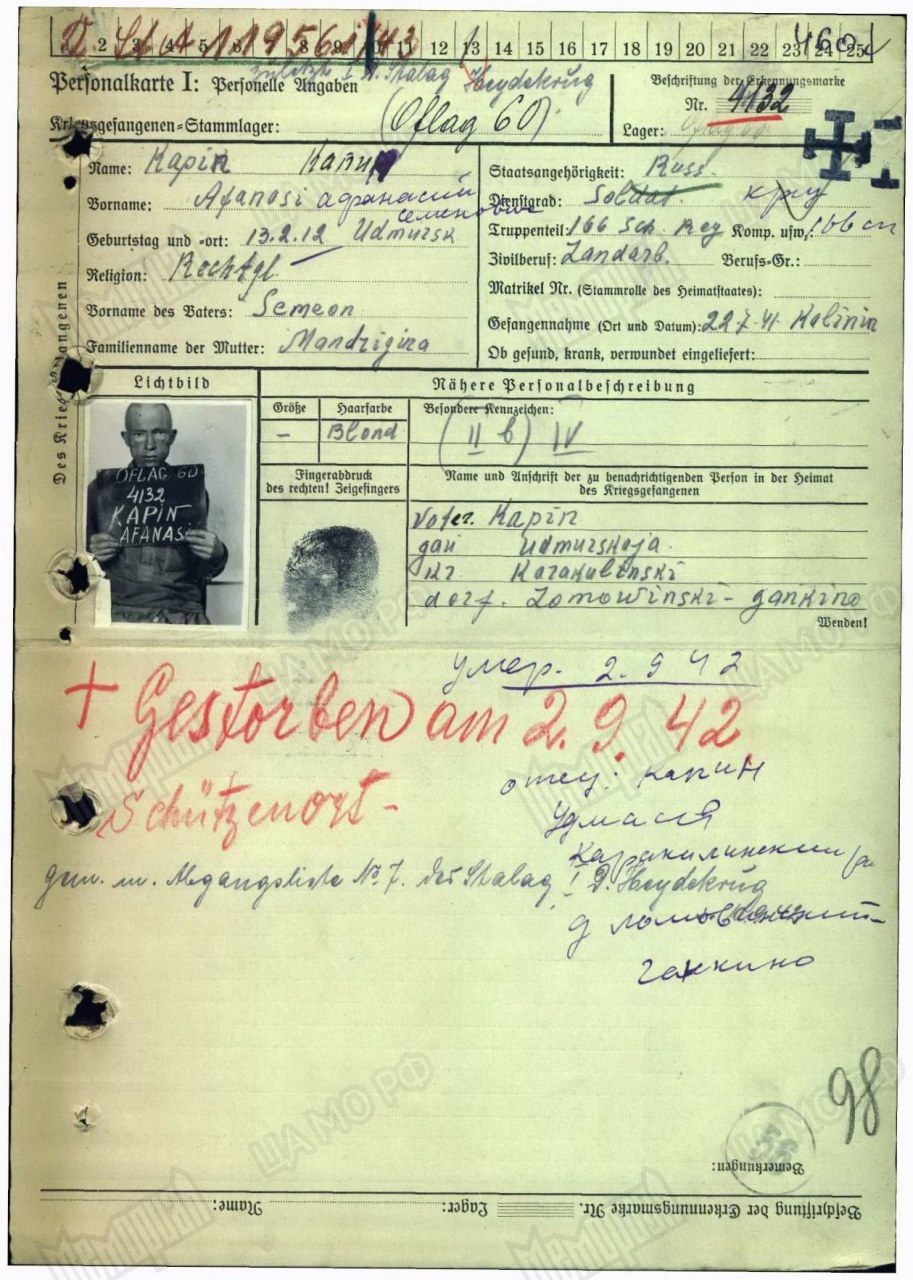 R. St A 119561/43
2 3 4 5 6 8 9 10 11 12 13 14 15 16 17 18 19 20 21 22 23 24 25
zuletzt Stalag Heydekrug
Personalkarte I: Personelle Angaben
Beschriftung der Erkennungsmarke
Nr. 4132
Kriegsgefangenen=Stammlager: (Oflag 60)
Lager: Oflag 60
Des Kriegsgefangenen
Name: Kapin Капин
Vorname: Afanasi афанасий
семенович
Geburtstag und =ort: 13.2.12 Udmursk
Religion: Rechtgl.
Vorname des Vaters: Semeon
Familienname der Mutter: Mandrigina
Staatsangehörigkeit: Russ.
Dienstgrad: Soldat. кр
Truppenteil: 166 Sch. Reg Komp. usw.: 166 сп
Zivilberuf: Landarb. Berufs=Gr.:
Matrikel Nr. (Stammrolle des Heimatstaates):
Gefangennahme (Ort und Datum): 22.7.41. Kalinin
Ob gesund, krank, verwundet eingeliefert:
Lichtbild
OFLAG 60
4132
KAPIN
AFANASI
Nähere Personalbeschreibung
Größe Haarfarbe Besondere Kennzeichen:
– Blond (II b) IV
Fingerabdruck
des rechten! Zeigefingers
Name und Anschrift der zu benachrichtigenden Person in der Heimat
des Kriegsgefangenen
Vater. Kapin
gau Udmurskaja.
Kr. Karakulinski
dorf. Lomowinski - gankino
Wenden!
умер. 2.9 42
+ Gestorben am 2.9.42.
отец: Капин
Schützenort -
Каракулинский
gem. m. Abgangsliste No. 7. des Stalag I D. Heydekrug
ганкино
98
Bemerkungen:
Beschriftung der Erkennungsmarke Nr. Lager: Name: